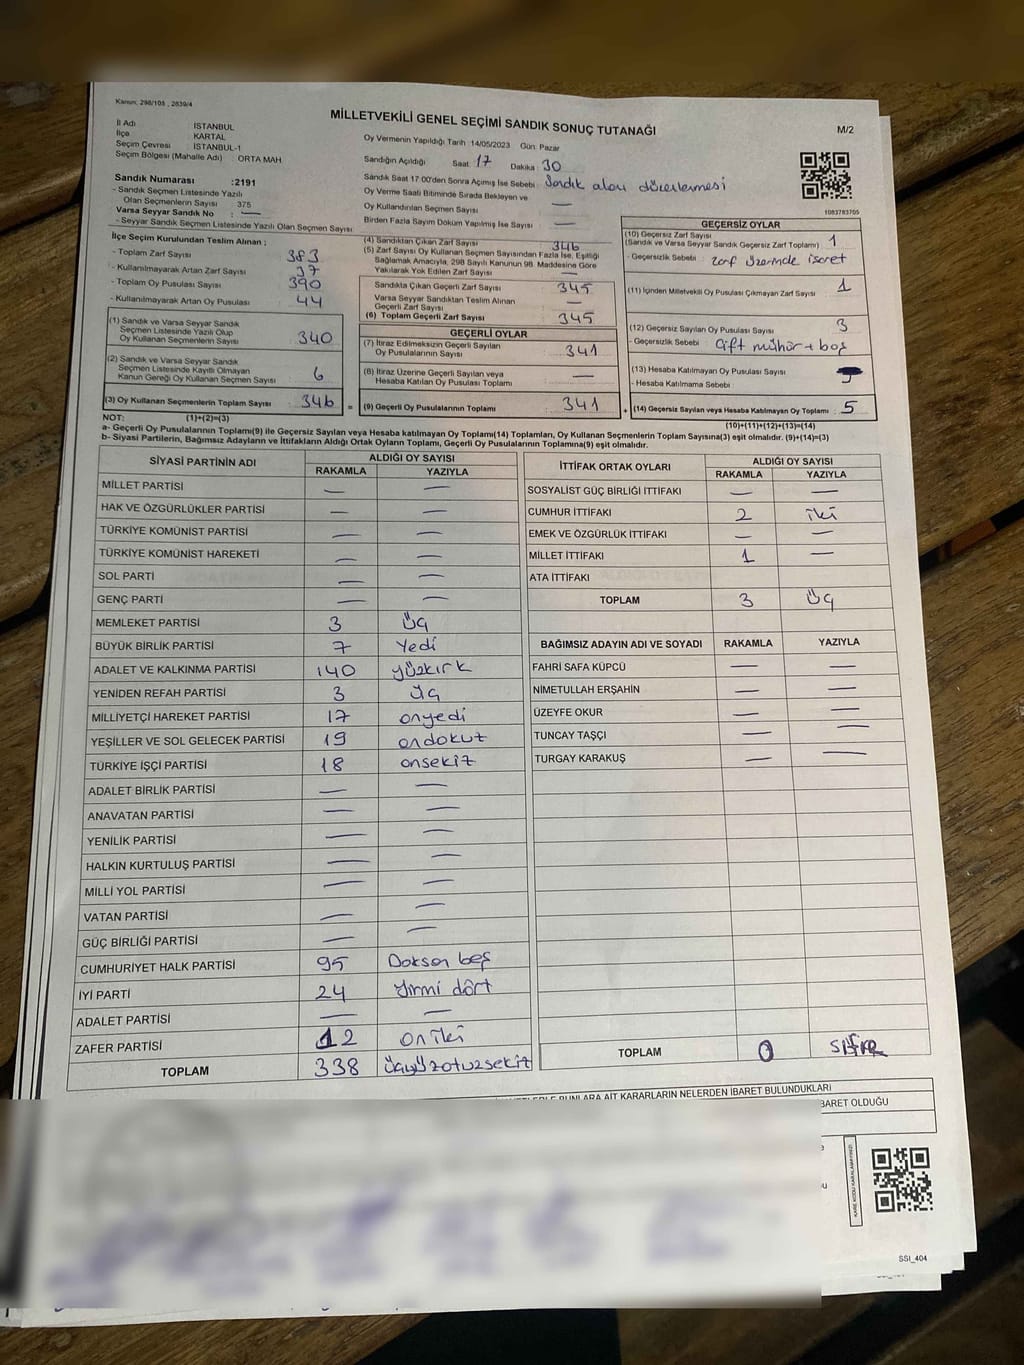 Kanun, 298/105 , 2839/4
MİLLETVEKİLİ GENEL SEÇİMİ SANDIK SONUÇ TUTANAĞI
M/2
İl Adı İSTANBUL
İlçe KARTAL
Seçim Çevresi İSTANBUL-1
Seçim Bölgesi (Mahalle Adı) : ORTA MAH
Sandık Numarası :2191
- Sandık Seçmen Listesinde Yazılı
Olan Seçmenlerin Sayısı 375
Varsa Seyyar Sandık No : —
- Seyyar Sandık Seçmen Listesinde Yazılı Olan Seçmen Sayısı
Oy Vermenin Yapıldığı Tarih 14/05/2023 Gün: Pazar
Sandığın Açıldığı Saat 17 Dakika 30
Sandık Saat 17.00'den Sonra Açılmış İse Sebebi Sandık alanı düzenlenmesi
Oy Verme Saati Bitiminde Sırada Bekleyen ve
Oy Kullandırılan Seçmen Sayısı —
Birden Fazla Sayım Döküm Yapılmış İse Sayısı —
1083783705
İlçe Seçim Kurulundan Teslim Alınan ;
- Toplam Zarf Sayısı 383
- Kullanılmayarak Artan Zarf Sayısı 37
- Toplam Oy Pusulası Sayısı 390
- Kullanılmayarak Artan Oy Pusulası 44
(1) Sandık ve Varsa Seyyar Sandık
Seçmen Listesinde Yazılı Olup
Oy Kullanan Seçmenlerin Sayısı 340
(2) Sandık ve Varsa Seyyar Sandık
Seçmen Listesinde Kayıtlı Olmayan
Kanun Gereği Oy Kullanan Seçmen Sayısı 6
(3) Oy Kullanan Seçmenlerin Toplam Sayısı 346
(4) Sandıktan Çıkan Zarf Sayısı 346
(5) Zarf Sayısı Oy Kullanan Seçmen Sayısından Fazla İse, Eşitliği
Sağlamak Amacıyla, 298 Sayılı Kanunun 98. Maddesine Göre
Yakılarak Yok Edilen Zarf Sayısı —
Sandıkta Çıkan Geçerli Zarf Sayısı 345
Varsa Seyyar Sandıktan Teslim Alınan
Geçerli Zarf Sayısı —
(6) Toplam Geçerli Zarf Sayısı 345
GEÇERLİ OYLAR
(7) İtiraz Edilmeksizin Geçerli Sayılan
Oy Pusulalarının Sayısı 341
(8) İtiraz Üzerine Geçerli Sayılan veya
Hesaba Katılan Oy Pusulası Toplamı —
= (9) Geçerli Oy Pusulalarının Toplamı 341
GEÇERSİZ OYLAR
(10) Geçersiz Zarf Sayısı
(Sandık ve Varsa Seyyar Sandık Geçersiz Zarf Toplamı) 1
- Geçersizlik Sebebi : zarf üzerinde işaret
(11) İçinden Milletvekili Oy Pusulası Çıkmayan Zarf Sayısı 1
(12) Geçersiz Sayılan Oy Pusulası Sayısı 3
- Geçersizlik Sebebi : Çift mühür + boş
(13) Hesaba Katılmayan Oy Pusulası Sayısı
- Hesaba Katılmama Sebebi
+ (14) Geçersiz Sayılan veya Hesaba Katılmayan Oy Toplamı 5
NOT: (1)+(2)=(3) (10)+(11)+(12)+(13)=(14)
a- Geçerli Oy Pusulalarının Toplamı(9) ile Geçersiz Sayılan veya Hesaba katılmayan Oy Toplamı(14) Toplamları, Oy Kullanan Seçmenlerin Toplam Sayısına(3) eşit olmalıdır. (9)+(14)=(3)
b- Siyasi Partilerin, Bağımsız Adayların ve İttifakların Aldığı Ortak Oyların Toplamı, Geçerli Oy Pusulalarının Toplamına(9) eşit olmalıdır.
SİYASİ PARTİNİN ADI ALDIĞI OY SAYISI
RAKAMLA YAZIYLA
MİLLET PARTİSİ — —
HAK VE ÖZGÜRLÜKLER PARTİSİ — —
TÜRKİYE KOMÜNİST PARTİSİ — —
TÜRKİYE KOMÜNİST HAREKETİ — —
SOL PARTİ — —
GENÇ PARTİ — —
MEMLEKET PARTİSİ 3 Üç
BÜYÜK BİRLİK PARTİSİ 7 Yedi
ADALET VE KALKINMA PARTİSİ 140 yüzkırk
YENİDEN REFAH PARTİSİ 3 Üç
MİLLİYETÇİ HAREKET PARTİSİ 17 onyedi
YEŞİLLER VE SOL GELECEK PARTİSİ 19 ondokuz
TÜRKİYE İŞÇİ PARTİSİ 18 onsekiz
ADALET BİRLİK PARTİSİ — —
ANAVATAN PARTİSİ — —
YENİLİK PARTİSİ — —
HALKIN KURTULUŞ PARTİSİ — —
MİLLİ YOL PARTİSİ — —
VATAN PARTİSİ — —
GÜÇ BİRLİĞİ PARTİSİ — —
CUMHURİYET HALK PARTİSİ 95 Doksan beş
İYİ PARTİ 24 Yirmi dört
ADALET PARTİSİ — —
ZAFER PARTİSİ 12 on iki
TOPLAM 338 üçyüzotuzsekiz
İTTİFAK ORTAK OYLARI ALDIĞI OY SAYISI
RAKAMLA YAZIYLA
SOSYALİST GÜÇ BİRLİĞİ İTTİFAKI — —
CUMHUR İTTİFAKI 2 iki
EMEK VE ÖZGÜRLÜK İTTİFAKI — —
MİLLET İTTİFAKI 1 —
ATA İTTİFAKI
TOPLAM 3 Üç
BAĞIMSIZ ADAYIN ADI VE SOYADI RAKAMLA YAZIYLA
FAHRİ SAFA KÜPCÜ — —
NİMETULLAH ERŞAHİN — —
ÜZEYFE OKUR — —
TUNCAY TAŞÇI — —
TURGAY KARAKUŞ — —
TOPLAM 0 SIFIR
BUNLARA AİT KARARLARIN NELERDEN İBARET BULUNDUKLARI
İBARET OLDUĞU
SSI_404